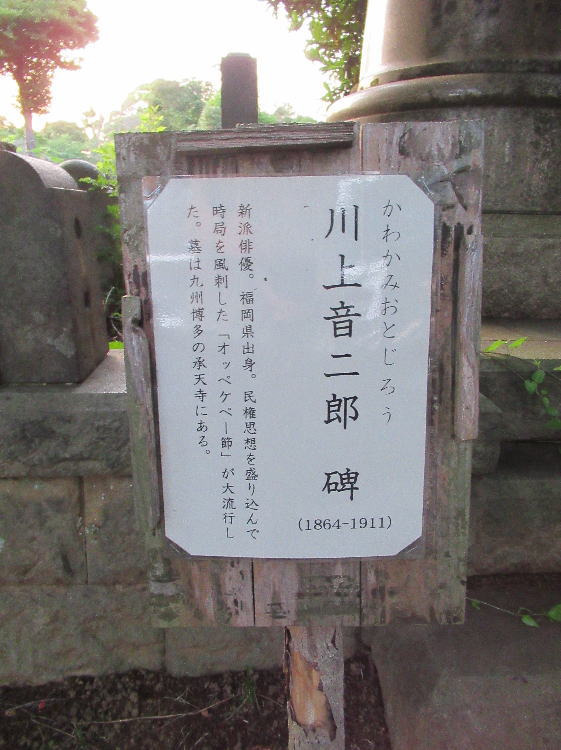 かわかみおとじろう
川上音二郎 碑
(1864-1911)
新派俳優。福岡県出身。民権思想を盛り込んで
時局を風刺した「オッペケペー節」が大流行し
た。墓は九州博多の承天寺にある。